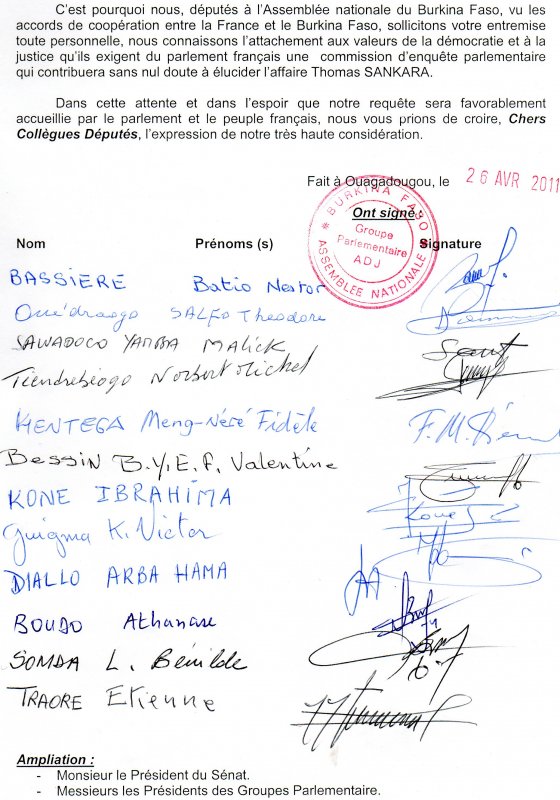 C'est pourquoi nous, députés à l'Assemblée nationale du Burkina Faso, vu les
accords de coopération entre la France et le Burkina Faso, sollicitons votre entremise
toute personnelle, nous connaissons l'attachement aux valeurs de la démocratie et à la
justice qu'ils exigent du parlement français une commission d'enquête parlementaire
qui contribuera sans nul doute à élucider l'affaire Thomas SANKARA.
Dans cette attente et dans l'espoir que notre requête sera favorablement
accueillie par le parlement et le peuple français, nous vous prions de croire, Chers
Collègues Députés, l'expression de notre très haute considération.
Fait à Ouagadougou, le 26 AVR 2011
BURKINA FASO
Groupe
Parlementaire
ADJ
ASSEMBLEE NATIONALE
Ont signé
Nom Prénoms (s) Signature
BASSIERE Batio Nestor
Ouédraogo SALFO Theodore
SAWADOGO YAMBA MALICK
Tiendrebéogo Norbert Michel
KENTEGA Meng-Néré Fidèle F.M.
Bessin B.Y.E.F. Valentine
KONE IBRAHIMA Kone
Guigma K. Victor
DIALLO ARBA HAMA
BOUDO Athanase
SOMDA L. Bénilde
TRAORE Etienne
Ampliation :
- Monsieur le Président du Sénat.
- Messieurs les Présidents des Groupes Parlementaire.